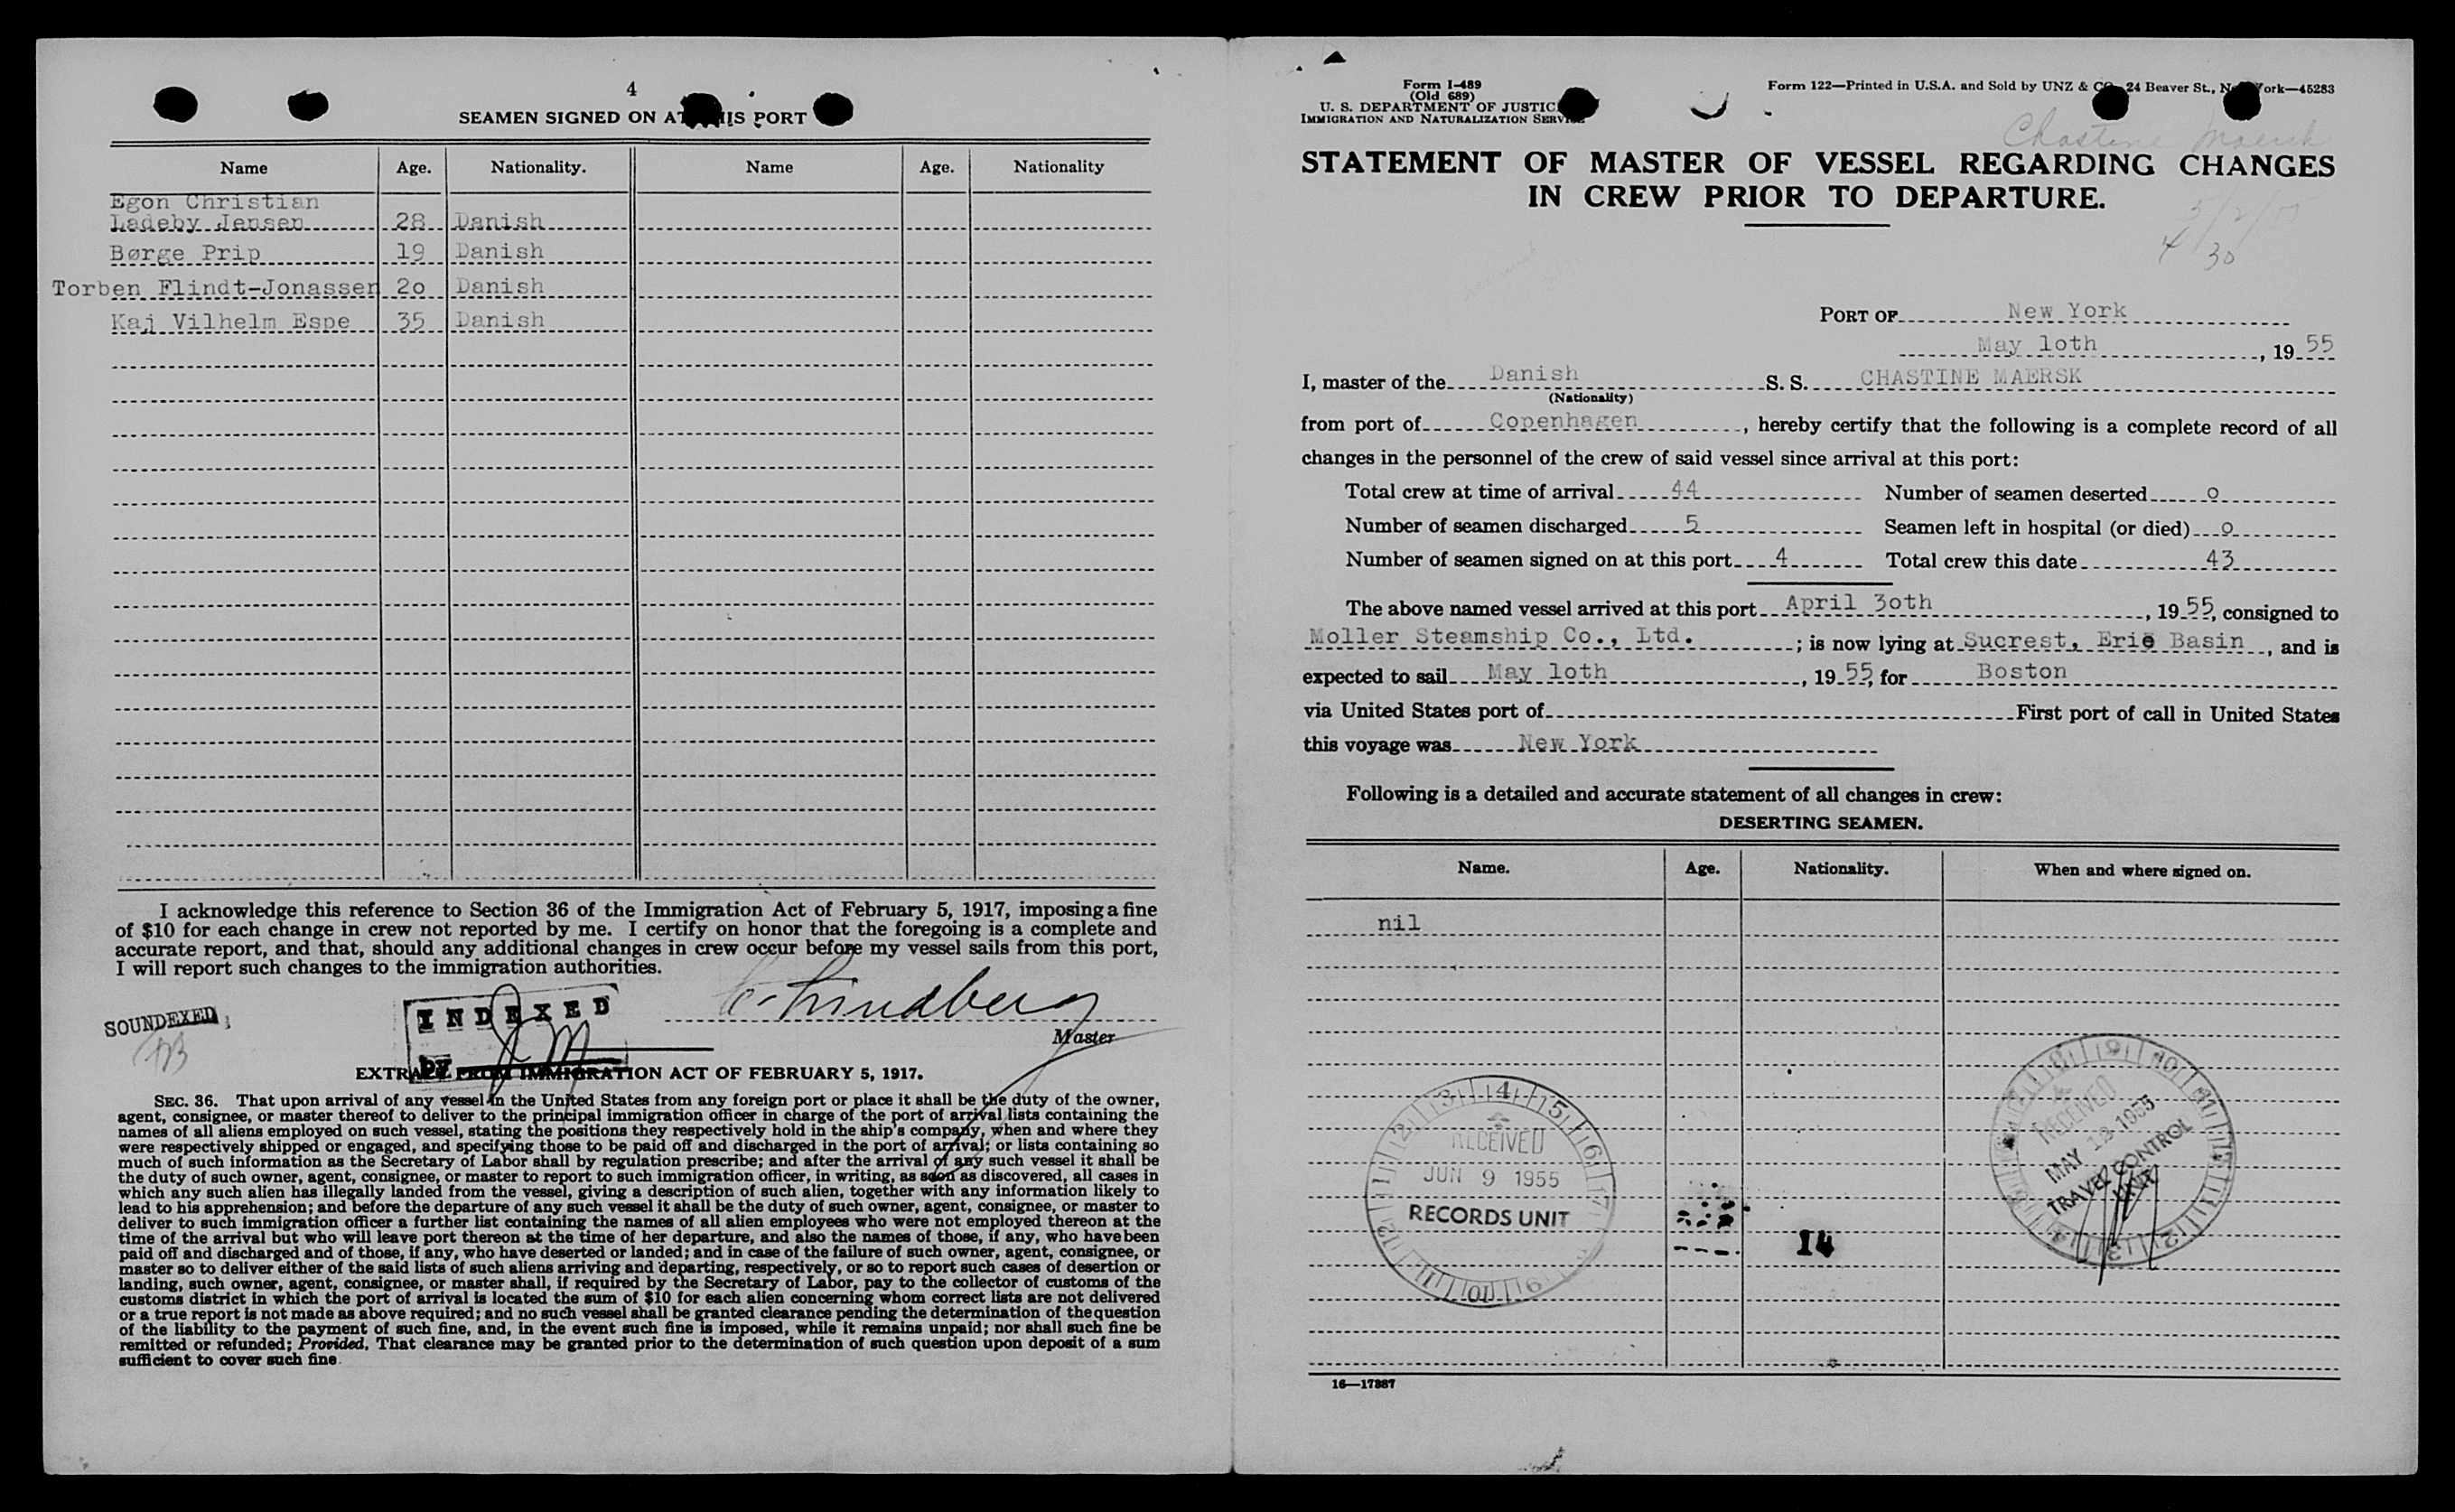 4
SEAMEN SIGNED ON AT THIS PORT
Name Age. Nationality. Name Age. Nationality
Egon Christian
Ladeby Jensen 28 Danish
Børge Prip 19 Danish
Torben Flindt-Jonassen 2o Danish
Kaj Vilhelm Espe 35 Danish
I acknowledge this reference to Section 36 of the Immigration Act of February 5, 1917, imposing a fine
of $10 for each change in crew not reported by me. I certify on honor that the foregoing is a complete and
accurate report, and that, should any additional changes in crew occur before my vessel sails from this port,
I will report such changes to the immigration authorities.
SOUNDEXED
INDEXED
BY
Master
EXTRACT FROM IMMIGRATION ACT OF FEBRUARY 5, 1917.
SEC. 36. That upon arrival of any vessel in the United States from any foreign port or place it shall be the duty of the owner,
agent, consignee, or master thereof to deliver to the principal immigration officer in charge of the port of arrival lists containing the
names of all aliens employed on such vessel, stating the positions they respectively hold in the ship's company, when and where they
were respectively shipped or engaged, and specifying those to be paid off and discharged in the port of arrival; or lists containing so
much of such information as the Secretary of Labor shall by regulation prescribe; and after the arrival of any such vessel it shall be
the duty of such owner, agent, consignee, or master to report to such immigration officer, in writing, as soon as discovered, all cases in
which any such alien has illegally landed from the vessel, giving a description of such alien, together with any information likely to
lead to his apprehension; and before the departure of any such vessel it shall be the duty of such owner, agent, consignee, or master to
deliver to such immigration officer a further list containing the names of all alien employees who were not employed thereon at the
time of the arrival but who will leave port thereon at the time of her departure, and also the names of those, if any, who have been
paid off and discharged and of those, if any, who have deserted or landed; and in case of the failure of such owner, agent, consignee, or
master so to deliver either of the said lists of such aliens arriving and departing, respectively, or so to report such cases of desertion or
landing, such owner, agent, consignee, or master shall, if required by the Secretary of Labor, pay to the collector of customs of the
customs district in which the port of arrival is located the sum of $10 for each alien concerning whom correct lists are not delivered
or a true report is not made as above required; and no such vessel shall be granted clearance pending the determination of the question
of the liability to the payment of such fine, and, in the event such fine is imposed, while it remains unpaid; nor shall such fine be
remitted or refunded; Provided, That clearance may be granted prior to the determination of such question upon deposit of a sum
sufficient to cover such fine.
Form I-489
(Old 689)
U. S. DEPARTMENT OF JUSTICE
IMMIGRATION AND NATURALIZATION SERVICE
Form 122—Printed in U.S.A. and Sold by UNZ & CO., 24 Beaver St., New York—45283
Chastine Maersk
STATEMENT OF MASTER OF VESSEL REGARDING CHANGES
IN CREW PRIOR TO DEPARTURE.
4 30
PORT OF New York
May 1oth, 19 55
I, master of the Danish S. S. CHASTINE MAERSK
(Nationality)
from port of Copenhagen, hereby certify that the following is a complete record of all
changes in the personnel of the crew of said vessel since arrival at this port:
Total crew at time of arrival 44 Number of seamen deserted o
Number of seamen discharged 5 Seamen left in hospital (or died) o
Number of seamen signed on at this port 4 Total crew this date 43
The above named vessel arrived at this port April 3oth, 19 55, consigned to
Moller Steamship Co., Ltd. ; is now lying at Sucrest, Erie Basin, and is
expected to sail May 1oth, 19 55, for Boston
via United States port of First port of call in United States
this voyage was New York
Following is a detailed and accurate statement of all changes in crew:
DESERTING SEAMEN.
Name. Age. Nationality. When and where signed on.
nil
RECEIVED
JUN 9 1955
RECORDS UNIT
14
RECEIVED
MAY 12 1955
TRAVEL CONTROL
UNIT
16—17887